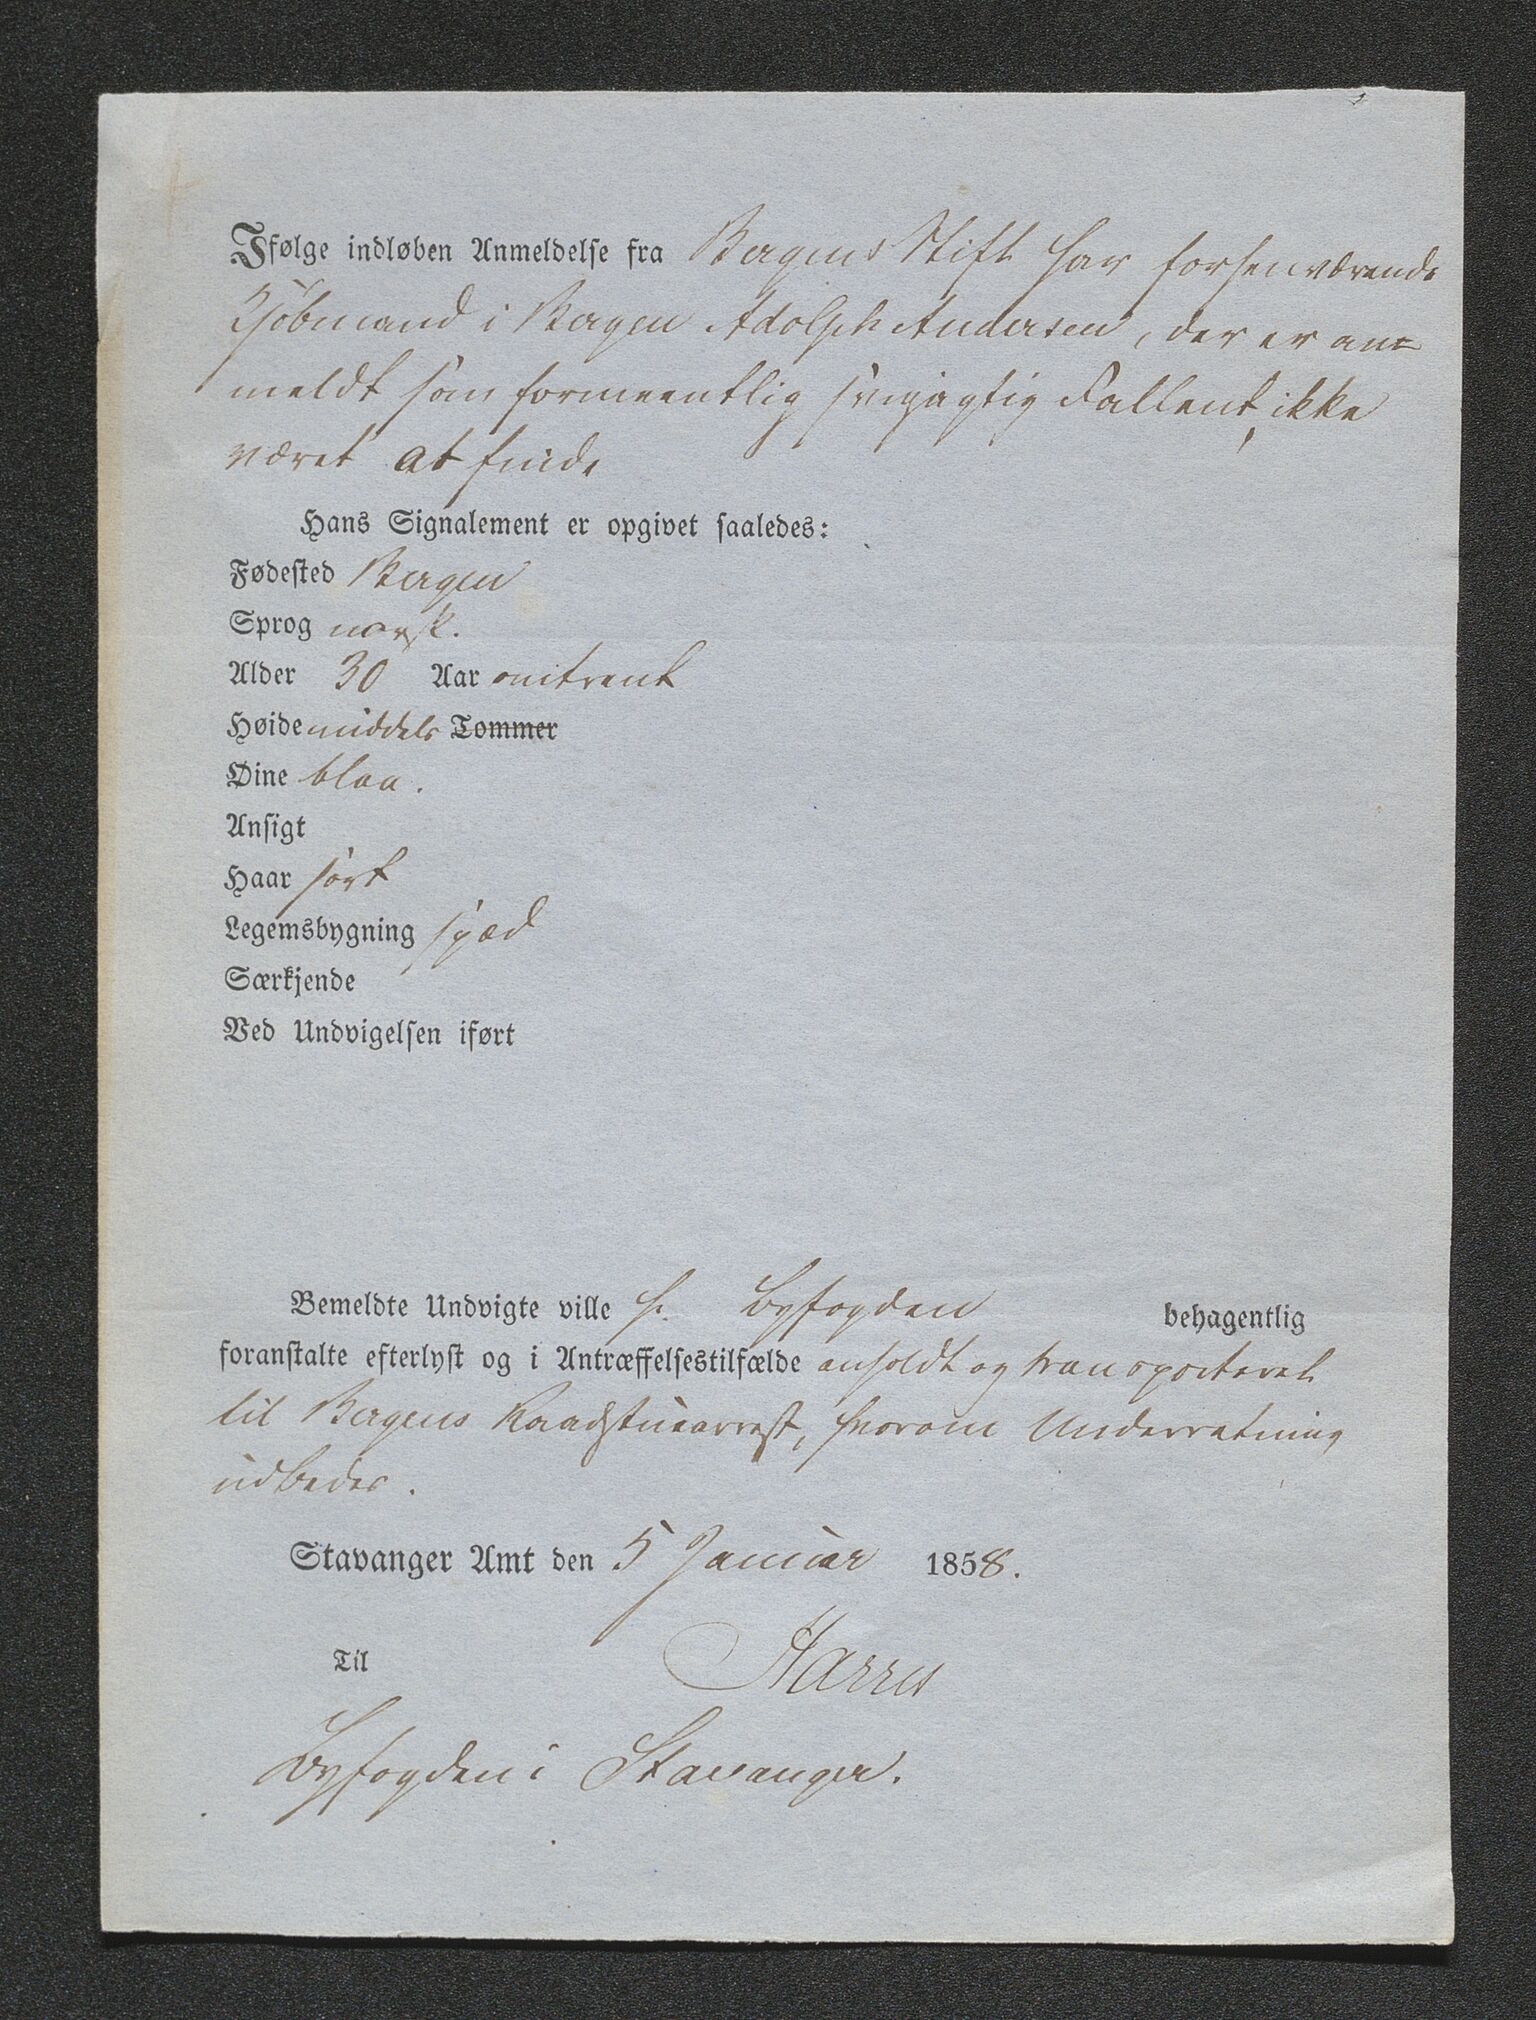 Ifølge indløben Anmeldelse fra Bergens Stift har forhenværende
Kjöbmand i Bergen Adolph Andersen, der er an=
meldt som formeentlig svigagtig Fallent, ikke
været at finde
Hans Signalement er opgivet saaledes:
Fødested Bergen
Sprog norsk.
Alder 30 Aar omtrent
Høide middels Tommer
Øine blaa.
Ansigt
Haar sort
Legemsbygning spæd
Særkjende
Ved Undvigelsen iført
Bemeldte Undvigte ville H. Byfogden behagentlig
foranstalte efterlyst og i Antræffelsestilfælde anholdt og transporteret
til Bergens Raadstuearrest, hvorom Underretning
udbedes.
Stavanger Amt den 5 Januar 1858.
Harris
Til
Byfogden i Stavanger.